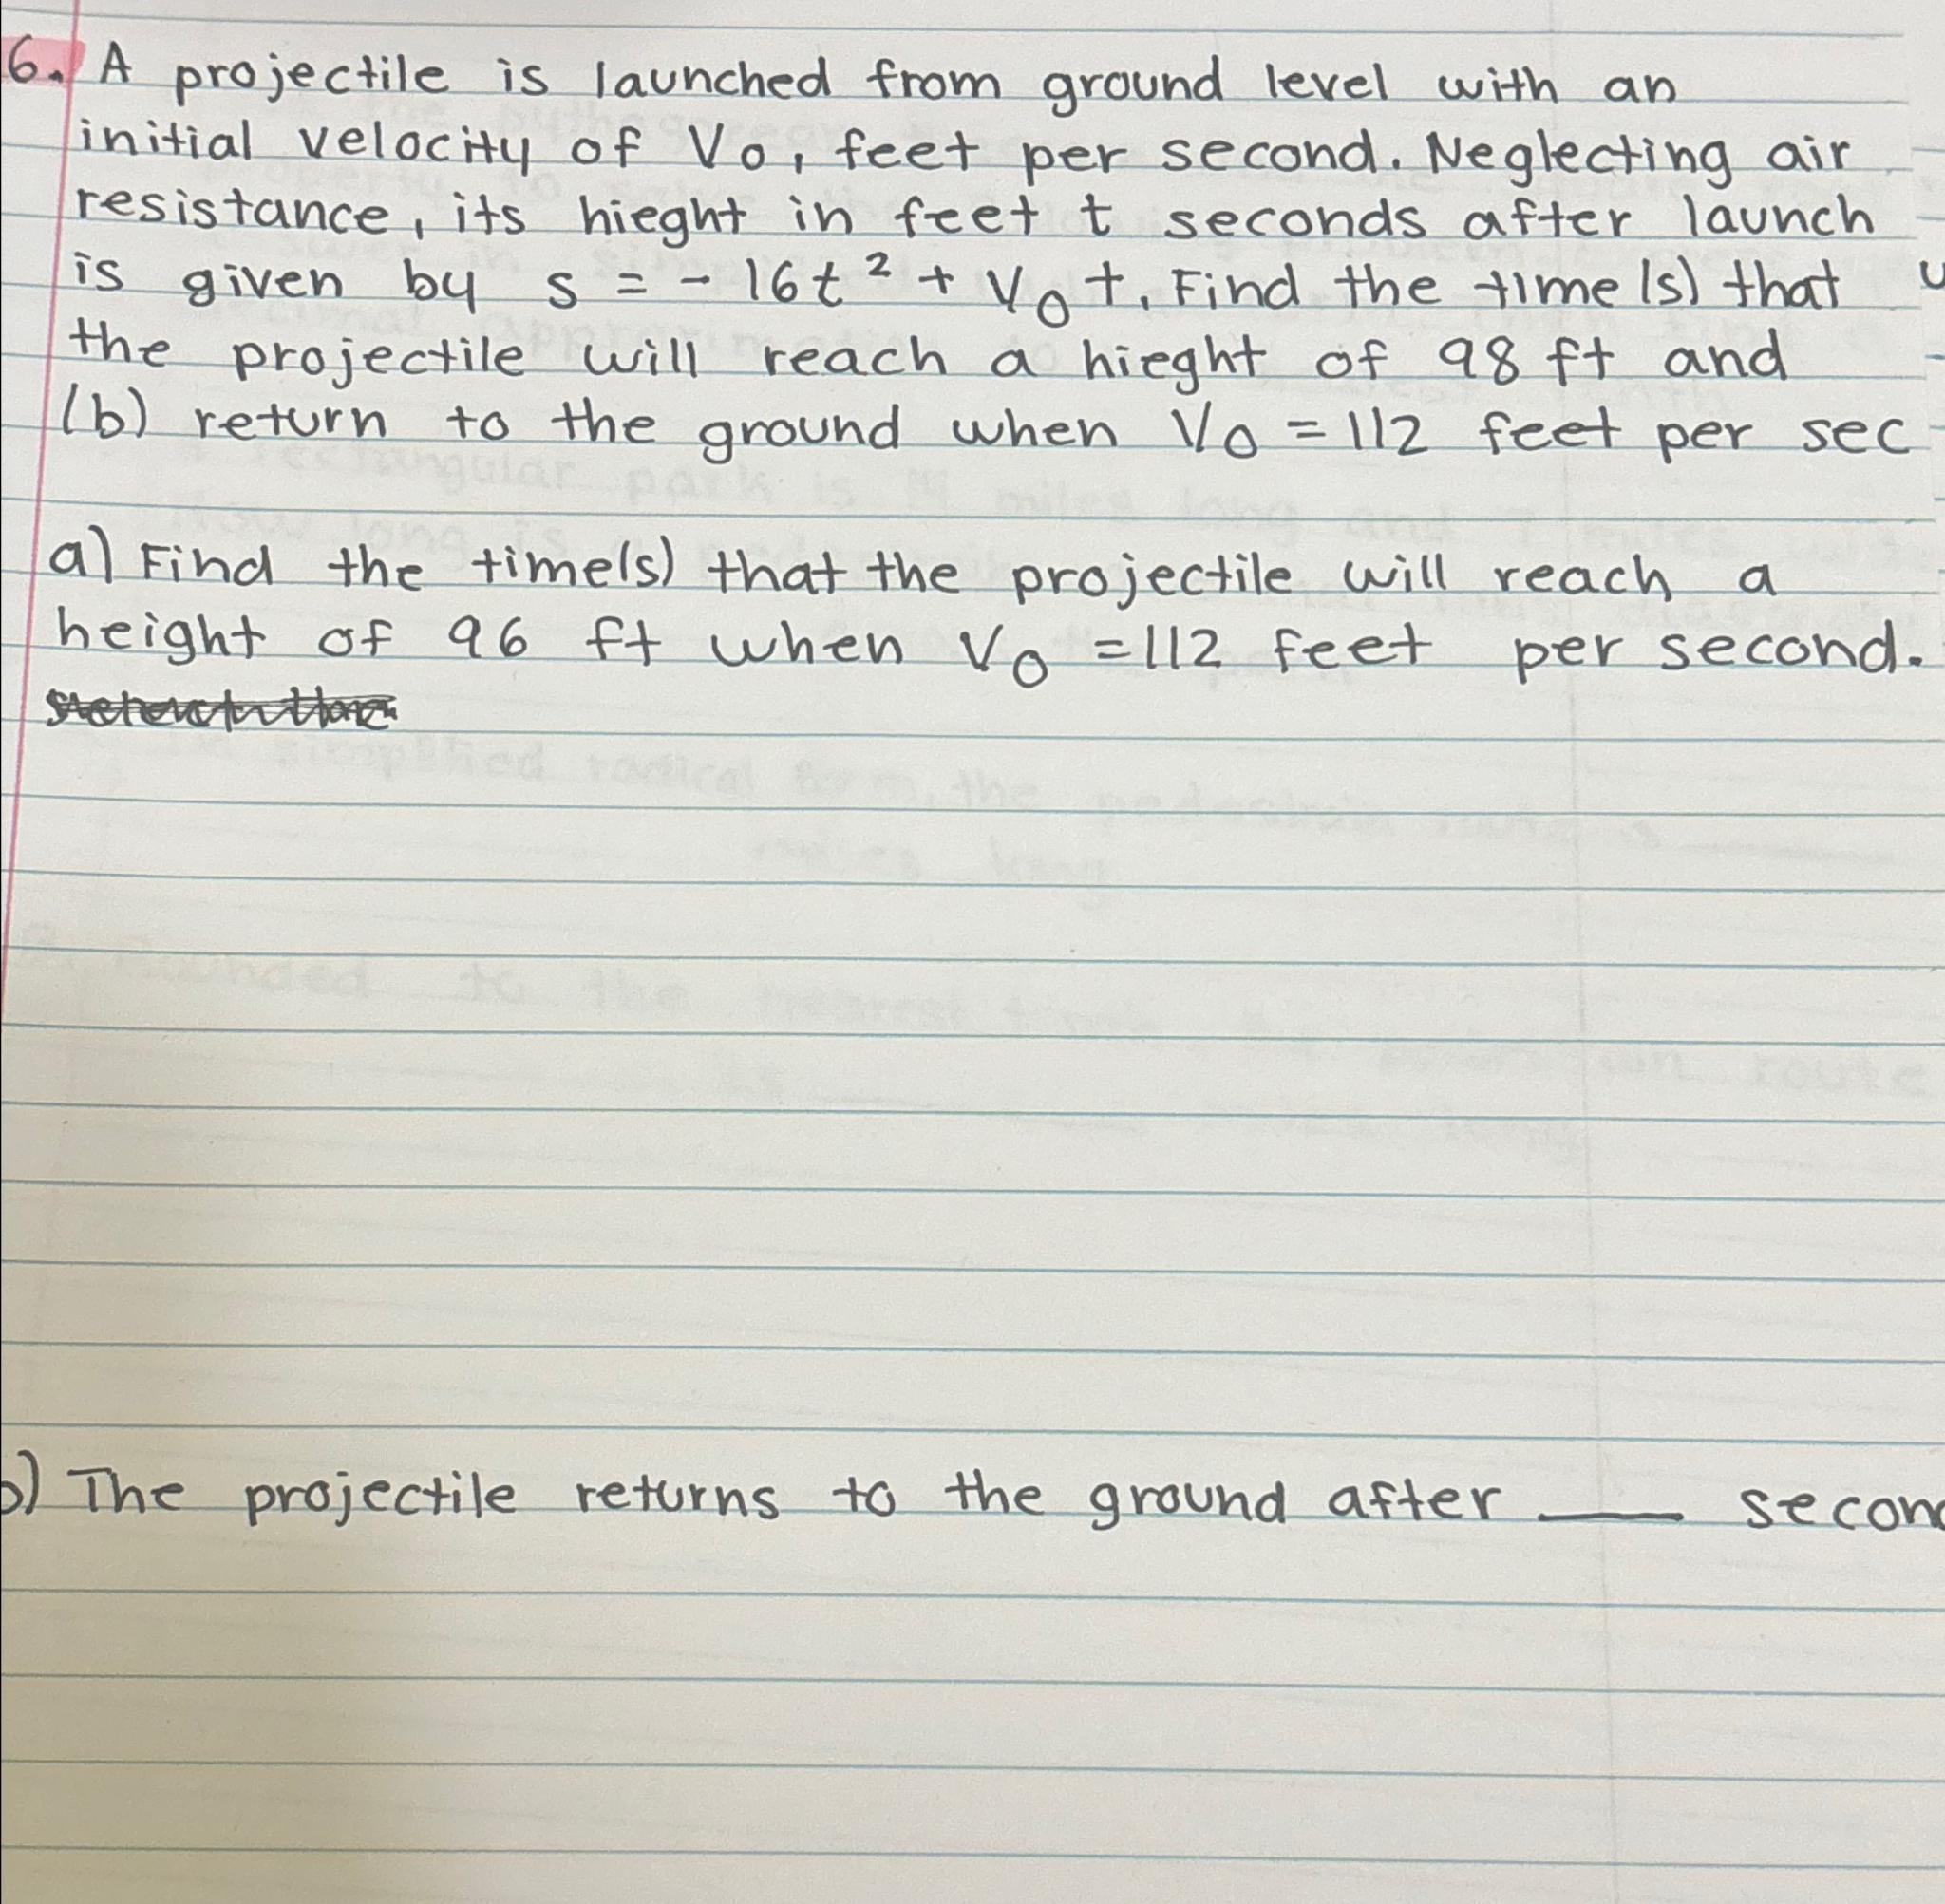 6. A projectile is launched from ground level with an
initial velocity of V₀, feet per second. Neglecting air
resistance, its hieght in feet t seconds after launch
is given by s = - 16t² + V₀ t. Find the time(s) that
the projectile will reach a hieght of 98 ft and
(b) return to the ground when V₀ = 112 feet per sec
a) Find the time(s) that the projectile will reach a
height of 96 ft when V₀ = 112 feet per second.
b) The projectile returns to the ground after ___ secon